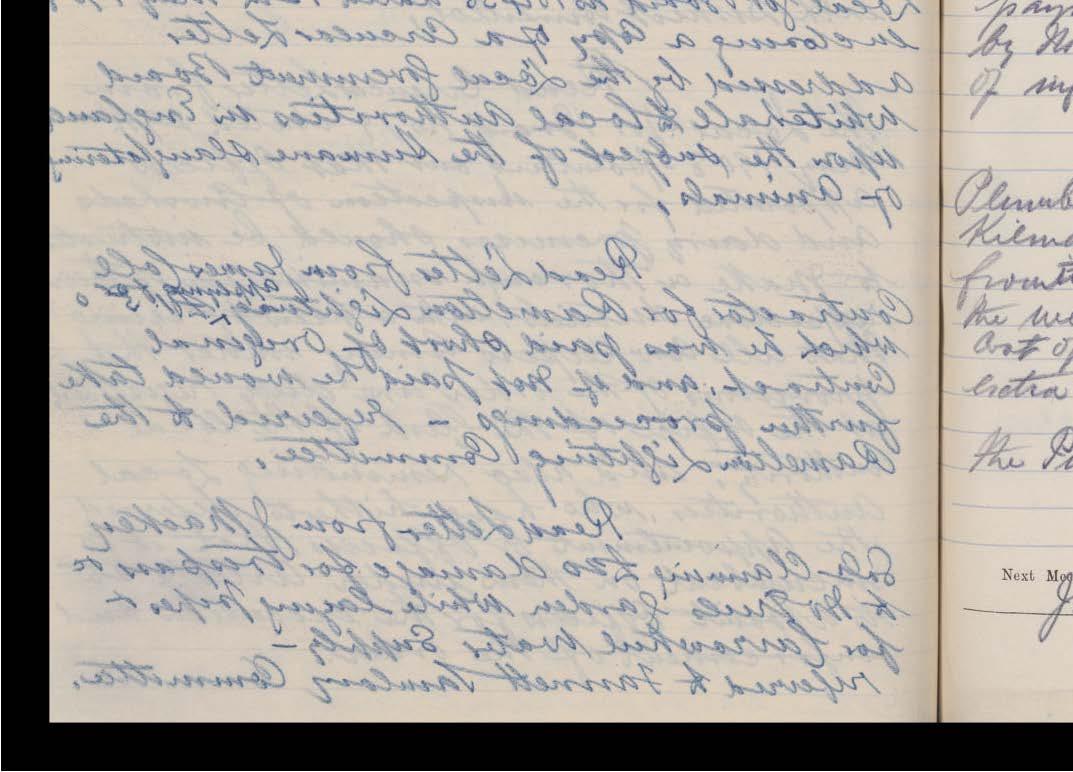 enclosing a Copy of a Circular Letter
addressed by the Local Government Board
Whitehall to local authorities in England
upon the subject of the humane slaughtering
of Animals,
Read Letter from James
Contractor for Ramelton Lighting asking for
which he was paid short of original
Contract, and if not paid he would take
further proceedings - referred to the
Ramelton Lighting Committee.
Read Letter from Mackey
Solr Claiming £20 damage for trespass
to garden while laying pipes
for Carrowkeel Water Supply -
referred to Fannett Sanitary Committee.
by
of my
Kilma
from
the
Cost of
extra
the
Next